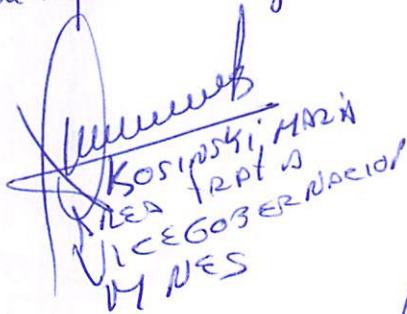 KOSINSKI, MARIA
AREA TRATA
VICEGOBERNACION
M NES